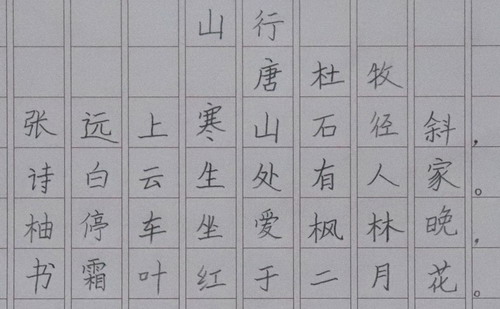 山行
唐 杜牧
张远上寒山石径斜，
诗白云生处有人家。
柚停车坐爱枫林晚，
书霜叶红于二月花。